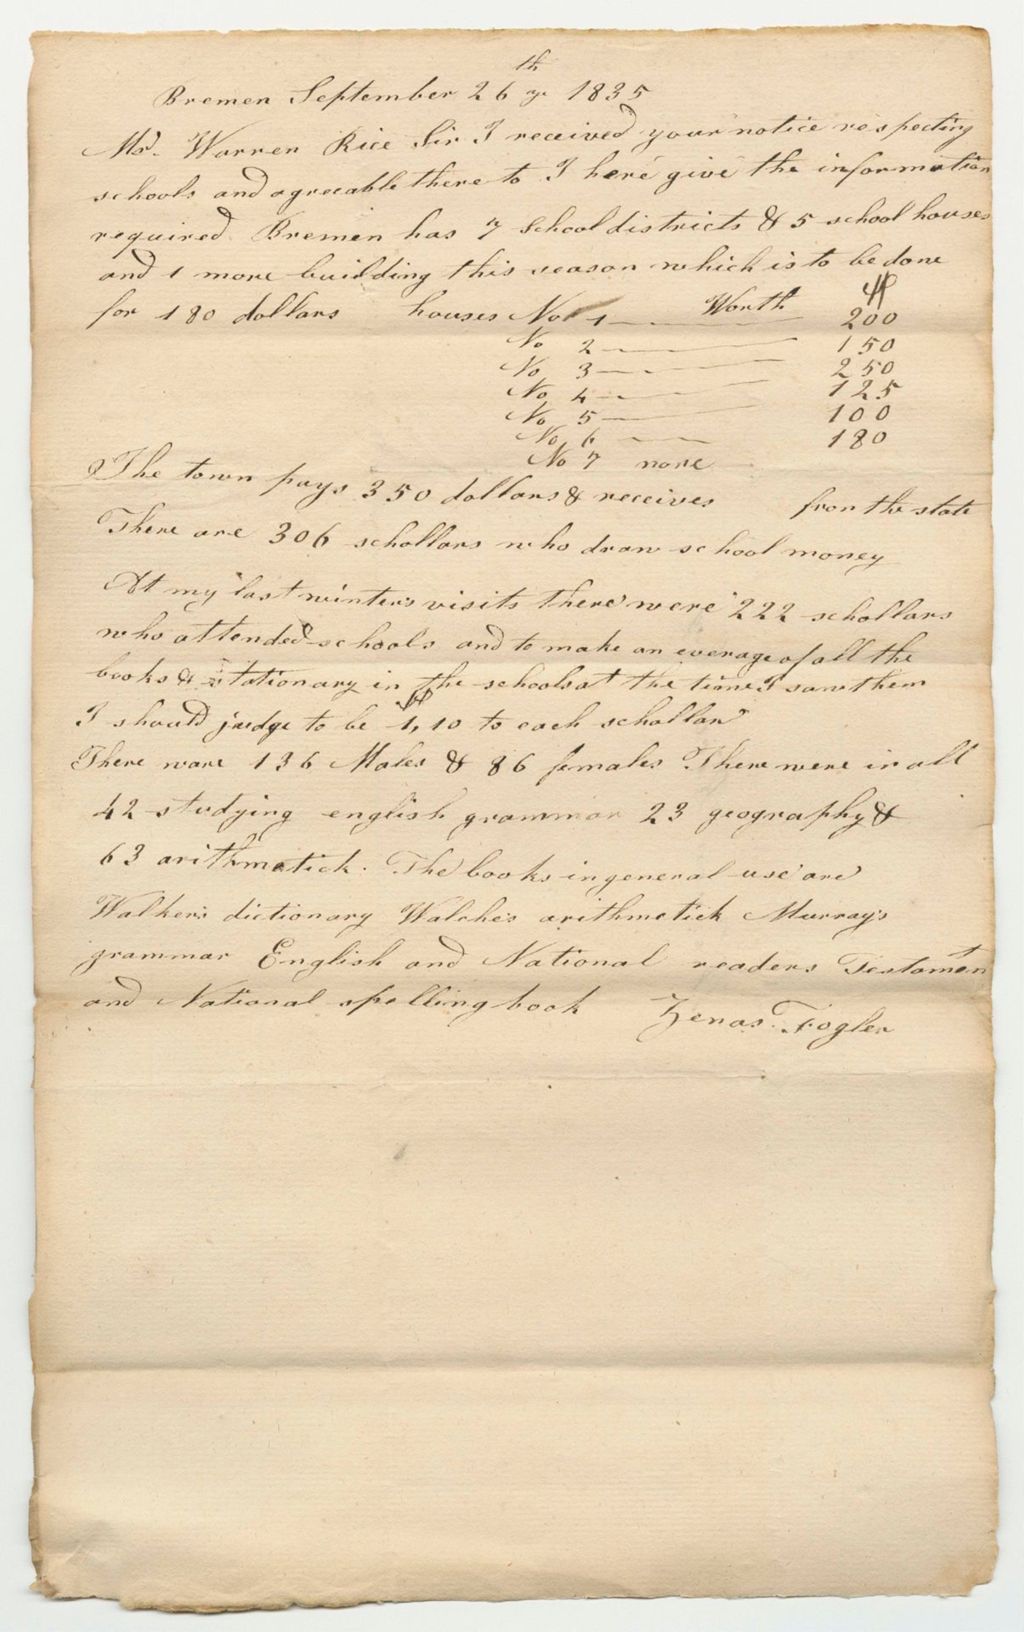 Bremen September 26th ye 1835
Mr. Warren Rice Sir I received your notice respecting
schools and agreeable there to I here give the information
required. Bremen has 7 School districts & 5 school houses
and 1 more building this season which is to be done
for 180 dollars houses No 1 Worth $ 200
No 2 150
No 3 250
No 4 125
No 5 100
No 6 180
No 7 none
The town pays 350 dollars & receives from the state
There are 306 schollars who draw school money
At my last winters visits there were 222 schollars
who attended schools and to make an everage of all the
books & stationary in the schools at the time I saw them
I should judge to be $1,10 to each schollar
There ware 136 Males & 86 females There were in all
42 studying english grammar 23 geography &
63 arithmetick. The books in general use are
Walker's dictionary Walche's arithmetick Murray's
grammar English and National readers Testament
and National spelling book Zenas Fogler